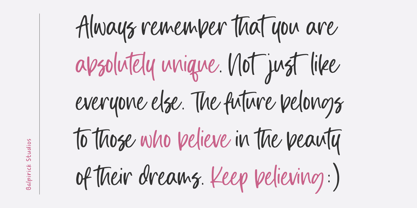 Always remember that you are
absolutely unique. Not just like
everyone else. The future belongs
to those who believe in the beauty
of their dreams. Keep believing :)
Balpirick Studios